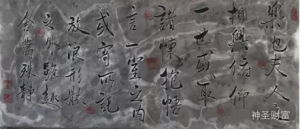 夫人之
相與俯仰
一世或取
諸懷抱悟
言一室之內
或寄所託
放浪形骸
之外雖趣
舍萬殊靜
神圣财富